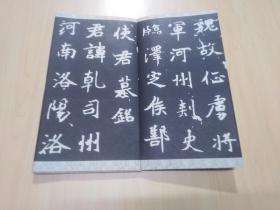 魏故征虜將
軍河州刺史
臨澤定侯鄯
使君墓銘
君諱乾司州
河南洛陽洛